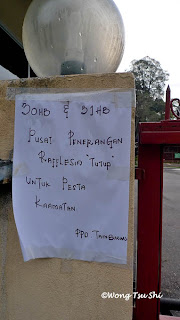 30HB & 31HB
PUSAT PENERANGAN
RAFFLESIA "TUTUP"
UNTUK PESTA
KAAMATAN
PPD TAMBUNAN
©Wong Tsu Shi